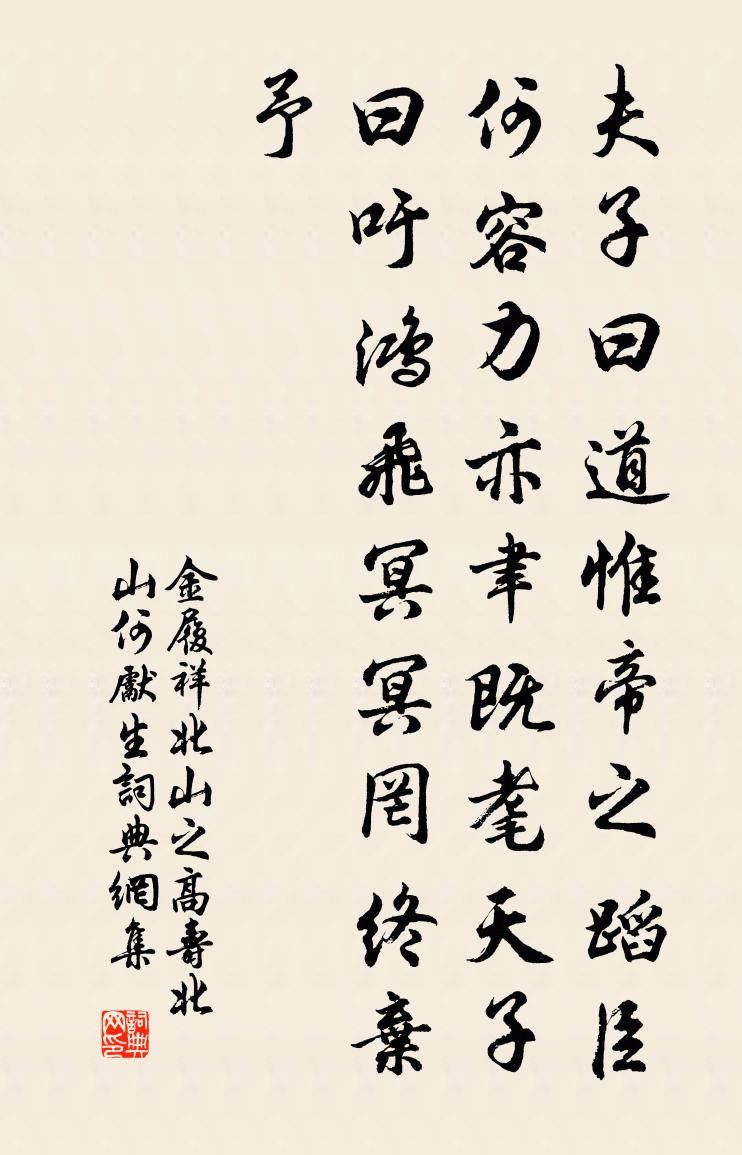 夫子曰道惟帝之蹈臣
何容力亦聿既耄天子
曰吁鴻飛冥冥罔終棄
予
金履祥北山之高壽北
山何獻生詞典網集
詞典
网印